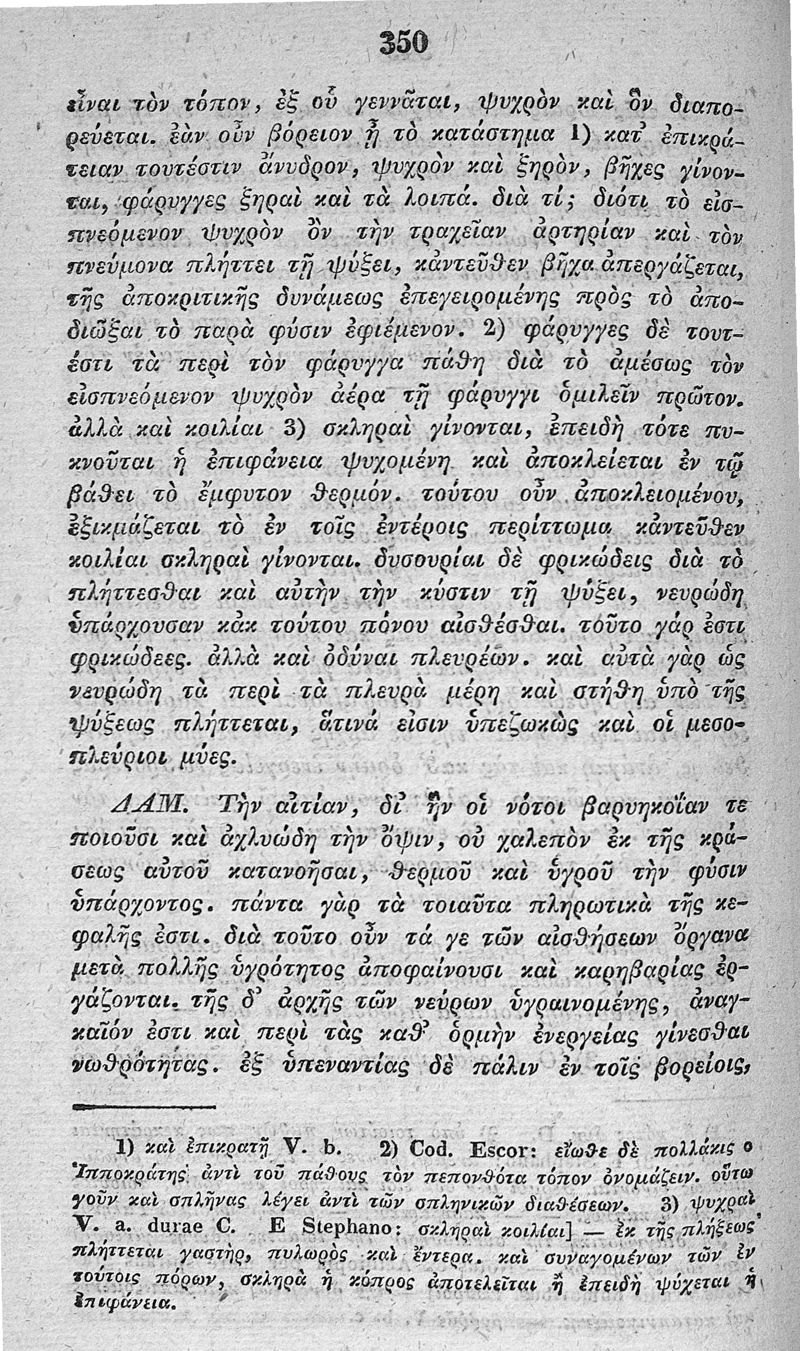 350
εἶναι τὸν τόπον, ἐξ οὗ γεννᾶται, ψυχρὸν καὶ ὃν διαπο-
ρεύεται. ἐὰν οὖν βόρειον ᾖ τὸ κατάστημα 1) κατ᾽ ἐπικρά-
τειαν τουτέστιν ἄνυδρον, ψυχρὸν καὶ ξηρὸν, βῆχες γίνον-
ται, φάρυγγες ξηραὶ καὶ τὰ λοιπά. διὰ τί; διότι τὸ εἰσ-
πνεόμενον ψυχρὸν ὂν τὴν τραχεῖαν ἀρτηρίαν καὶ τὸν
πνεύμονα πλήττει τῇ ψύξει, κἀντεῦθεν βῆχα ἀπεργάζεται,
τῆς ἀποκριτικῆς δυνάμεως ἐπεγειρομένης πρὸς τὸ ἀπο-
διῶξαι τὸ παρὰ φύσιν ἐφιέμενον. 2) φάρυγγες δὲ τουτ-
έστι τὰ περὶ τὸν φάρυγγα πάθη διὰ τὸ ἀμέσως τὸν
εἰσπνεόμενον ψυχρὸν ἀέρα τῇ φάρυγγι ὁμιλεῖν πρῶτον.
ἀλλὰ καὶ κοιλίαι 3) σκληραὶ γίνονται, ἐπειδὴ τότε πυ-
κνοῦται ἡ ἐπιφάνεια ψυχομένη καὶ ἀποκλείεται ἐν τῷ
βάθει τὸ ἔμφυτον θερμόν. τούτου οὖν ἀποκλειομένου,
ἐξικμάζεται τὸ ἐν τοῖς ἐντέροις περίττωμα κἀντεῦθεν
κοιλίαι σκληραὶ γίνονται. δυσουρίαι δὲ φρικώδεις διὰ τὸ
πλήττεσθαι καὶ αὐτὴν τὴν κύστιν τῇ ψύξει, νευρώδη
ὑπάρχουσαν κἀκ τούτου πόνου αἰσθέσθαι. τοῦτο γάρ ἐστι
φρικώδεες. ἀλλὰ καὶ ὀδύναι πλευρέων. καὶ αὐτὰ γὰρ ὡς
νευρώδη τὰ περὶ τὰ πλευρὰ μέρη καὶ στήθη ὑπὸ τῆς
ψύξεως πλήττεται, ἅτινά εἰσιν ὑπεζωκὼς καὶ οἱ μεσο-
πλεύριοι μύες.
ΔΑΜ. Τὴν αἰτίαν, δι᾽ ἣν οἱ νότοι βαρυηκοΐαν τε
ποιοῦσι καὶ ἀχλυώδη τὴν ὄψιν, οὐ χαλεπὸν ἐκ τῆς κρά-
σεως αὐτοῦ κατανοῆσαι, θερμοῦ καὶ ὑγροῦ τὴν φύσιν
ὑπάρχοντος. πάντα γὰρ τὰ τοιαῦτα πληρωτικὰ τῆς κε-
φαλῆς ἐστι. διὰ τοῦτο οὖν τά γε τῶν αἰσθήσεων ὄργανα
μετὰ πολλῆς ὑγρότητος ἀποφαίνουσι καὶ καρηβαρίας ἐρ-
γάζονται. τῆς δ᾽ ἀρχῆς τῶν νεύρων ὑγραινομένης, ἀναγ-
καῖόν ἐστι καὶ περὶ τὰς καθ᾽ ὁρμὴν ἐνεργείας γίνεσθαι
νωθρότητας. ἐξ ὑπεναντίας δὲ πάλιν ἐν τοῖς βορείοις,
1) καὶ ἐπικρατῇ V. b. 2) Cod. Escor: εἴωθε δὲ πολλάκις ο
Ἱπποκράτης ἀντὶ τοῦ πάθους τὸν πεπονθότα τόπον ὀνομάζειν. οὕτω
γοῦν καὶ σπλῆνας λέγει ἀντὶ τῶν σπληνικῶν διαθέσεων. 3) ψυχραὶ
V. a. durae C. E Stephano: σκληραὶ κοιλίαι] — ἐκ τῆς πλήξεως
πλήττεται γαστὴρ, πυλωρὸς καὶ ἔντερα. καὶ συναγομένων τῶν ἐν
τούτοις πόρων, σκληρὰ ἡ κόπρος ἀποτελεῖται ἢ ἐπειδὴ ψύχεται ἡ
ἐπιφάνεια.